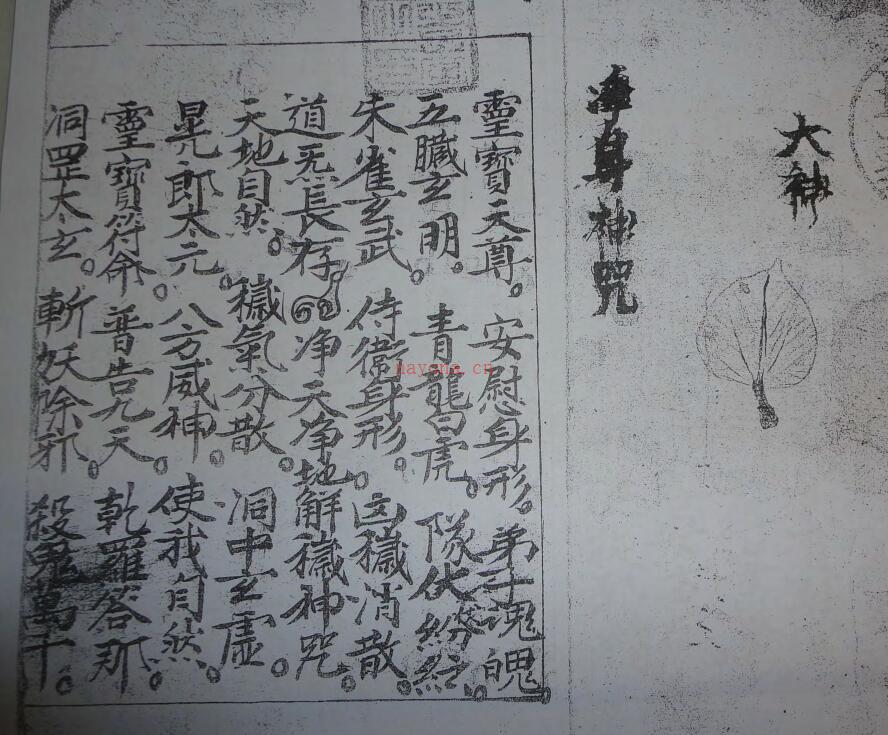 大神
净身神咒
靈寶天尊。安慰身形。弟子魂魄。
五臟玄明。青龍白虎。隊伏紛紜。
朱雀玄武。侍衛身形。凶穢消散。
道炁長存。净天净地解穢神咒。
天地自然。穢氣分散。洞中玄虛。
晃郎太元。八方威神。使我自然。
靈寶符命。普告九天。乾羅答那。
洞罡太玄。斬妖除邪。殺鬼萬千。
nayona.cn